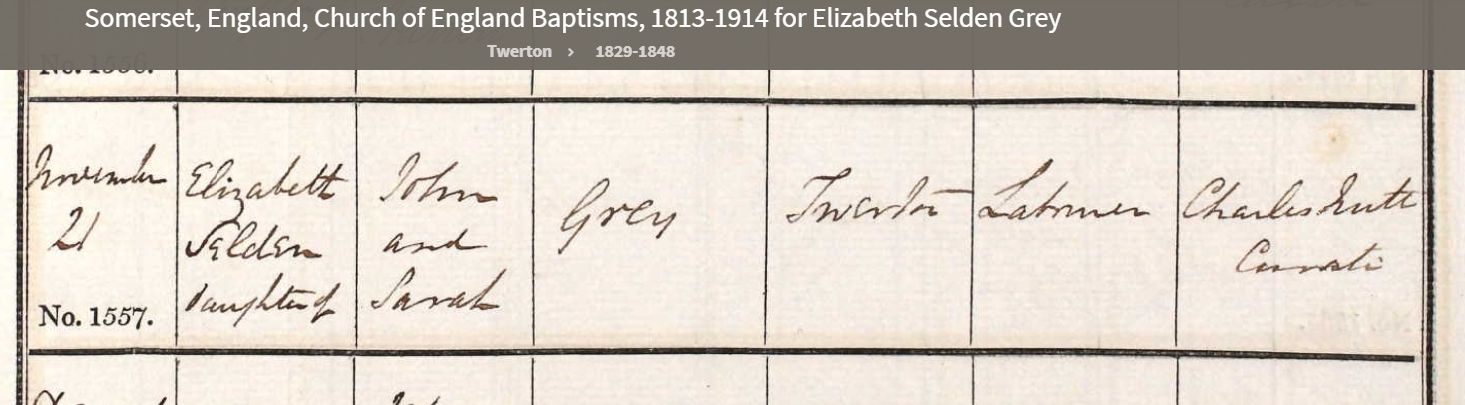 Somerset, England, Church of England Baptisms, 1813-1914 for Elizabeth Selden Grey
Twerton > 1829-1848
No. 1556.
November
21
No. 1557.
Elizabeth
Selden
daughter of
John
and
Sarah
Grey
Twerton
Labourer
Charles
Curate